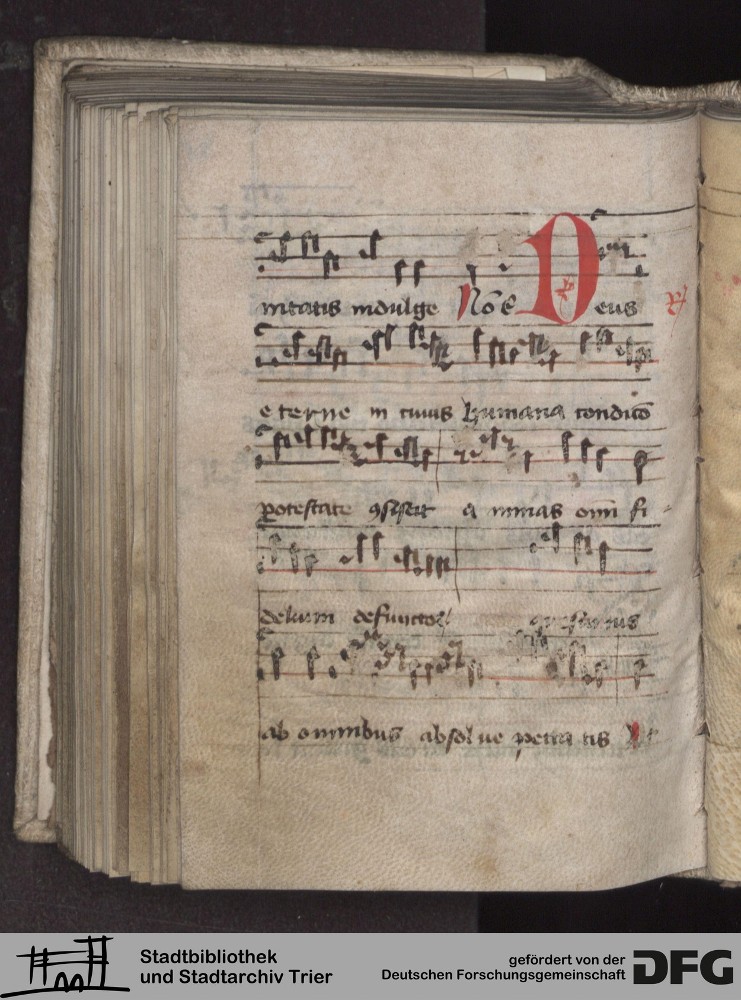 nitatis indulge Nõ e Deus
eterne in cuius humana condicõ
potestate ꝯsistit a nimas om̃ fi-
delium defunctoꝝ quesumus
ab omnibus absolve pecca tis
Stadtbibliothek
und Stadtarchiv Trier
gefördert von der
Deutschen Forschungsgemeinschaft
DFG